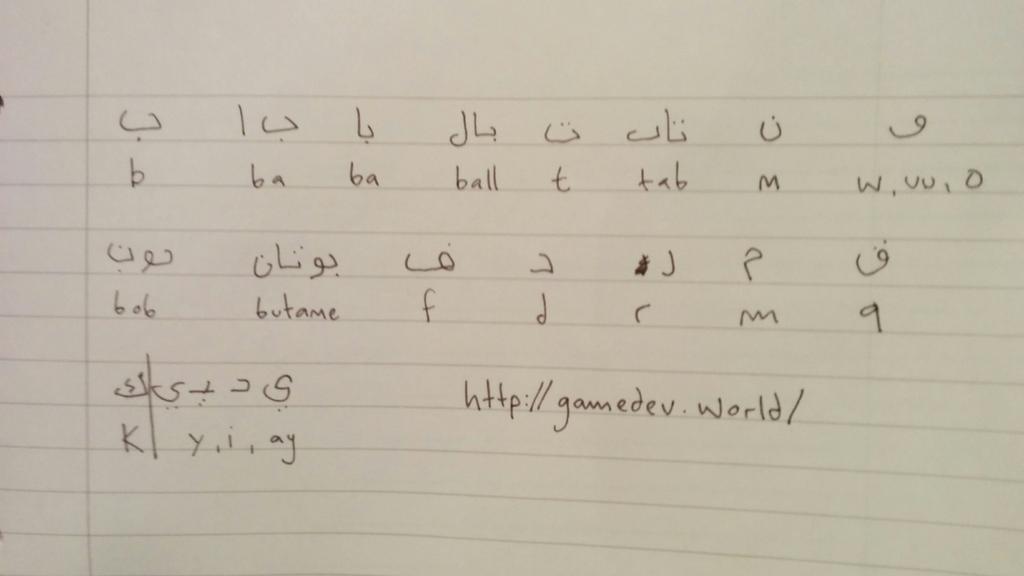 ب ب ا با بال ت تاب ن و
b ba ba ball t tab n w, uu, o
بوب بوتان ف د ر م ق
bob butane f d r m q
ك ي ـيـ ي
K y, i, ay http://gamedev.world/